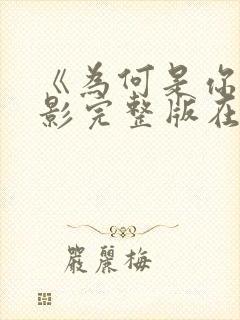 《为何是你
影完整版在
严丽梅